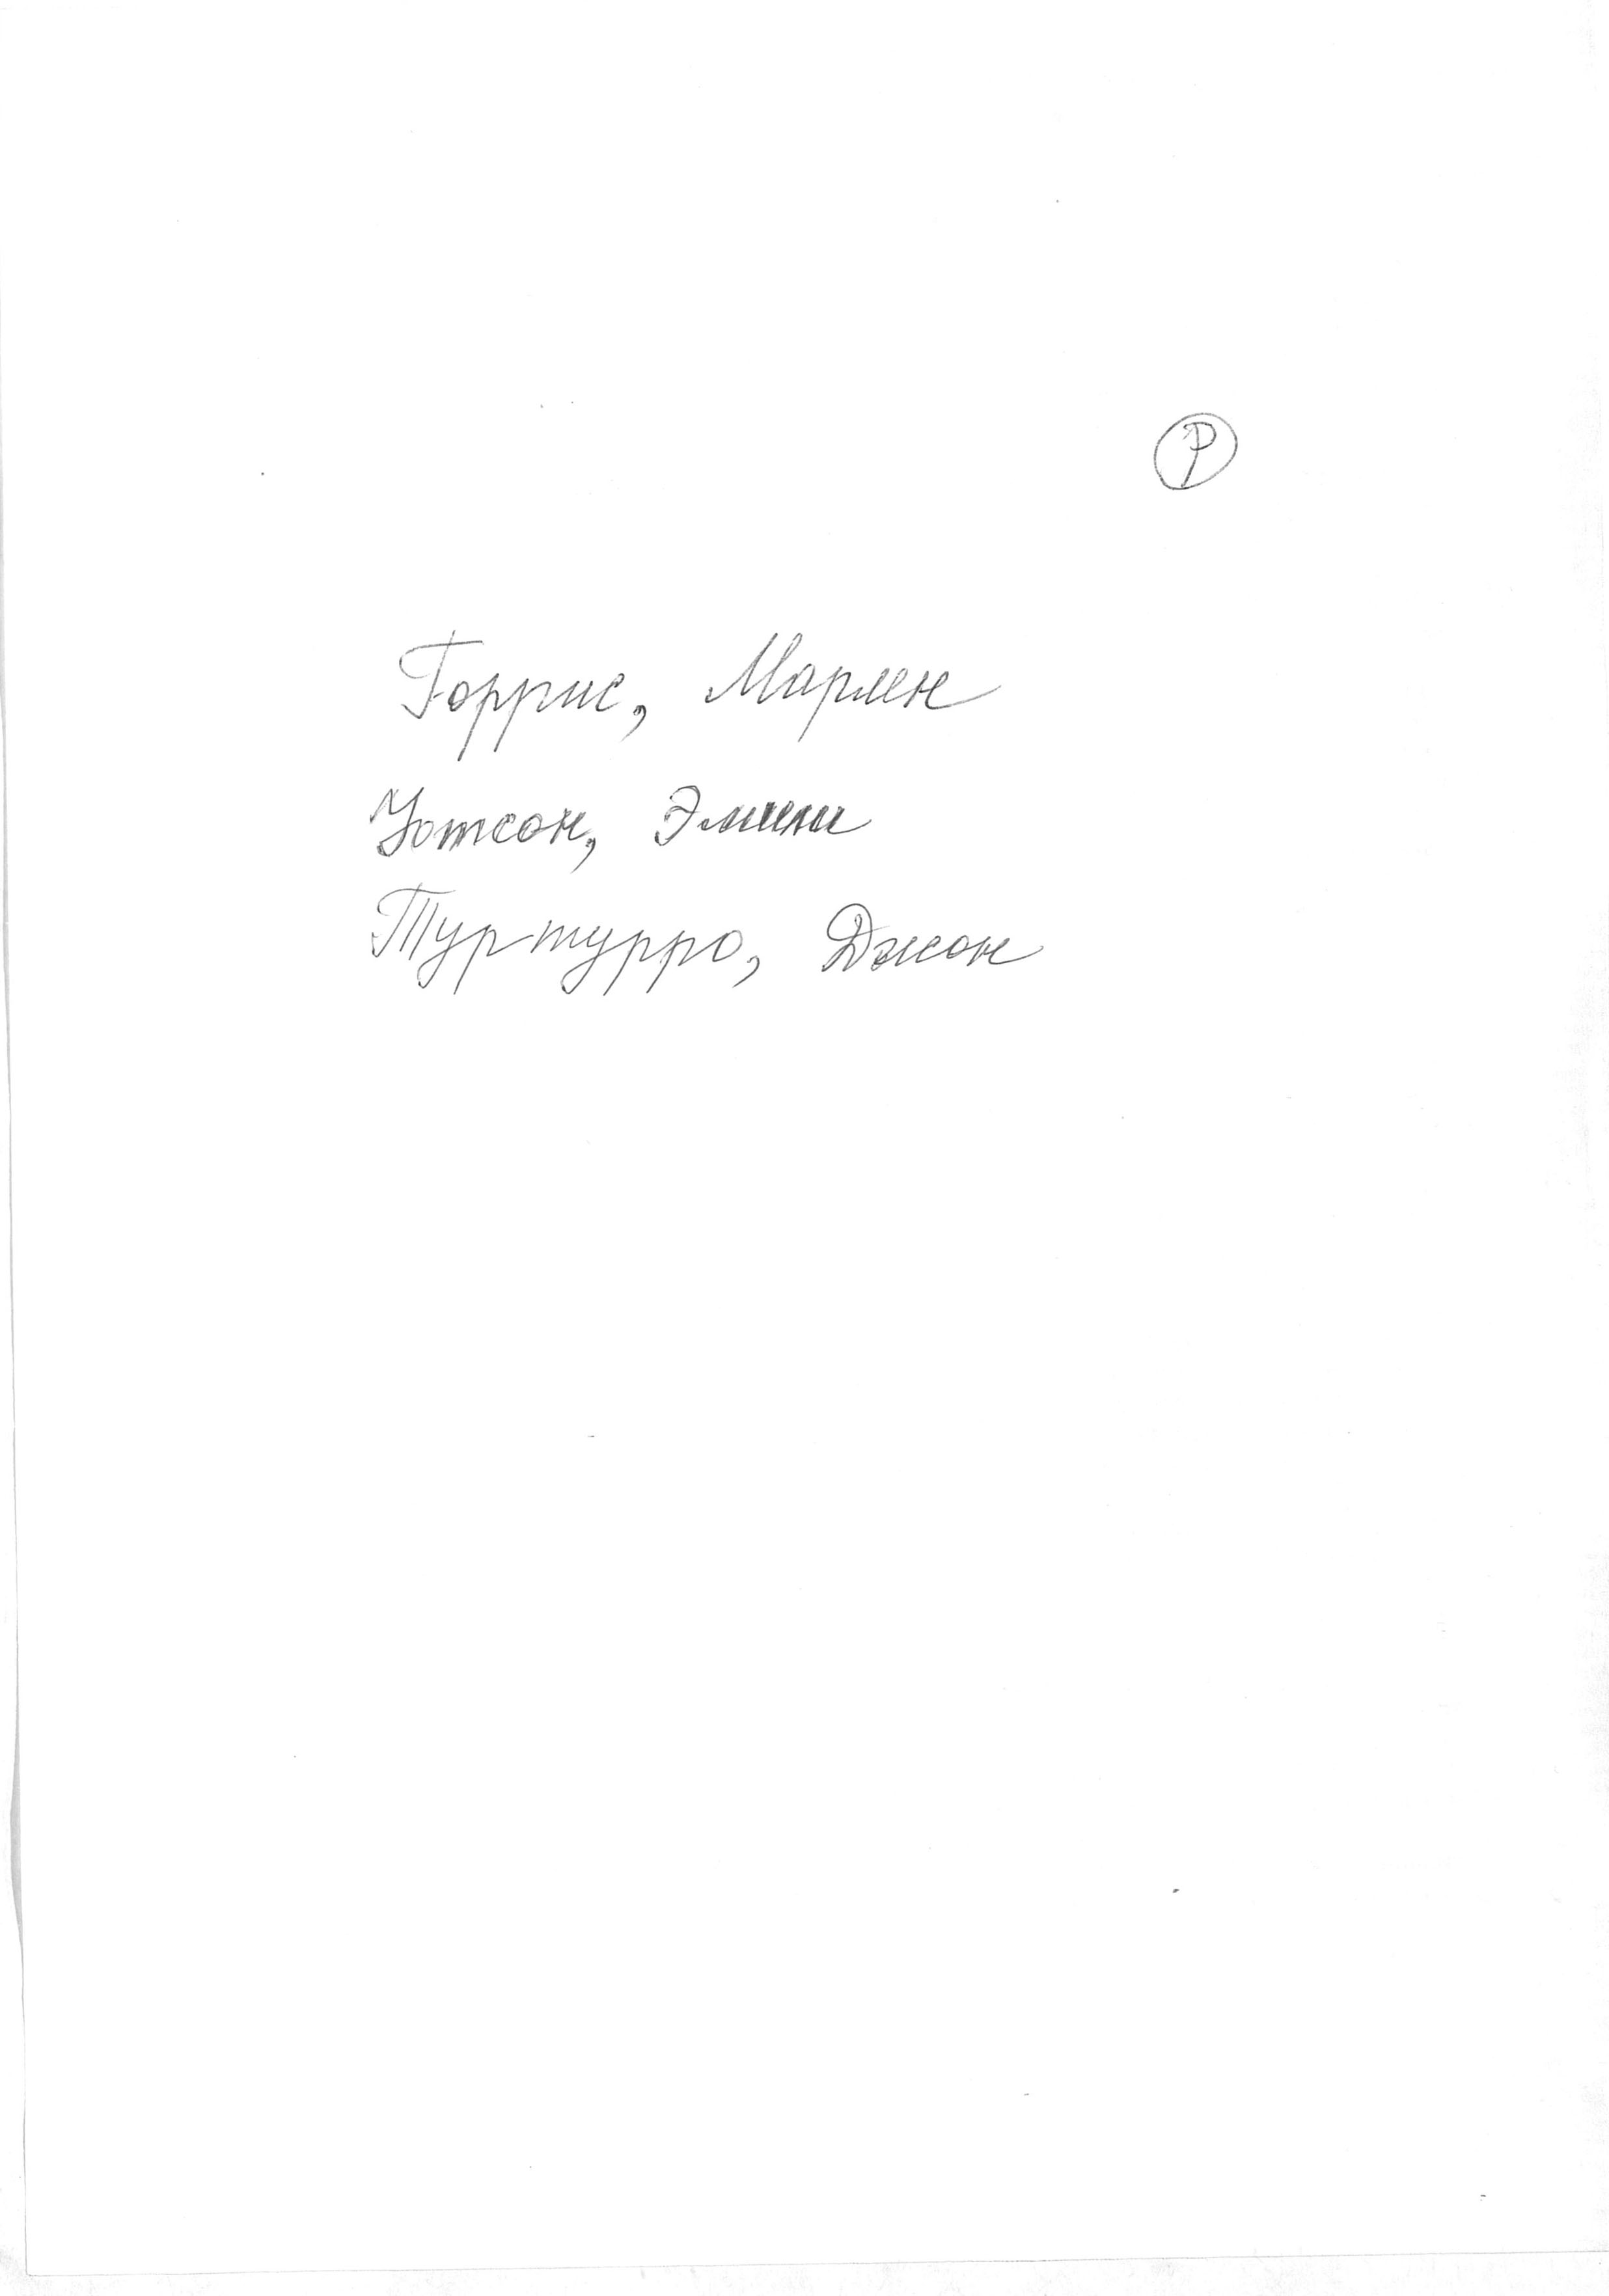 Р
Горрис, Марлен
Уотсон, Эмили
Туртурро, Джон